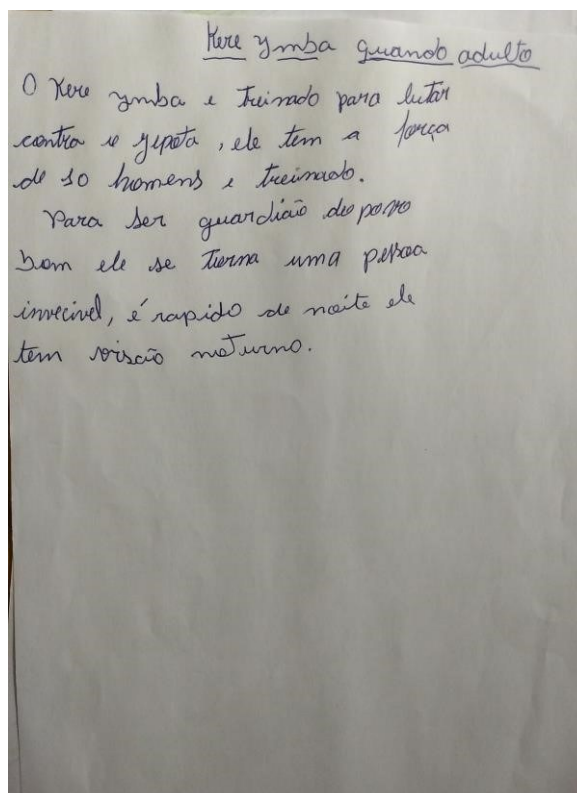 Kere ymba quando adulto
O Kere ymba e treinado para lutar
contra o jepota, ele tem a força
de 10 homens e treinado.
Para ser guardião do povo
bom ele se torna uma pessoa
invecivel, é rapido de noite ele
tem visão noturno.